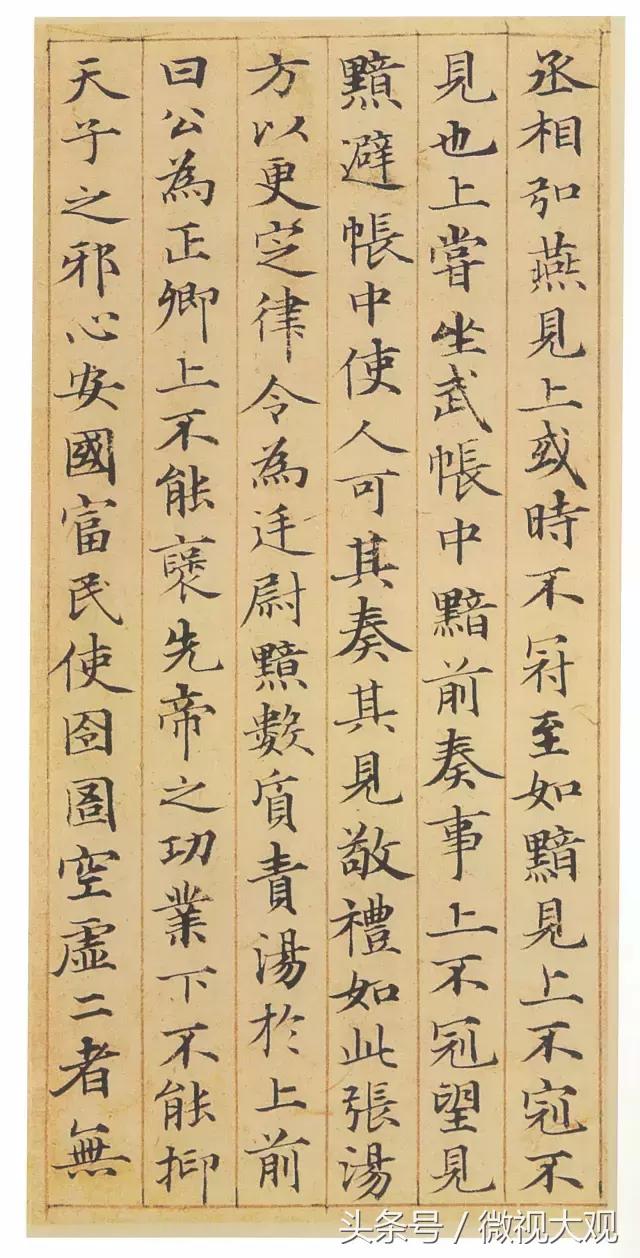 丞相弘燕見上或時不冠至如黯見上不冠不
見也上嘗坐武帳中黯前奏事上不冠望見
黯避帳中使人可其奏其見敬禮如此張湯
方以更定律令為廷尉黯數質責湯於上前
曰公為正卿上不能褒先帝之功業下不能抑
天子之邪心安國富民使囹圄空虛二者無
头条号/微视大观